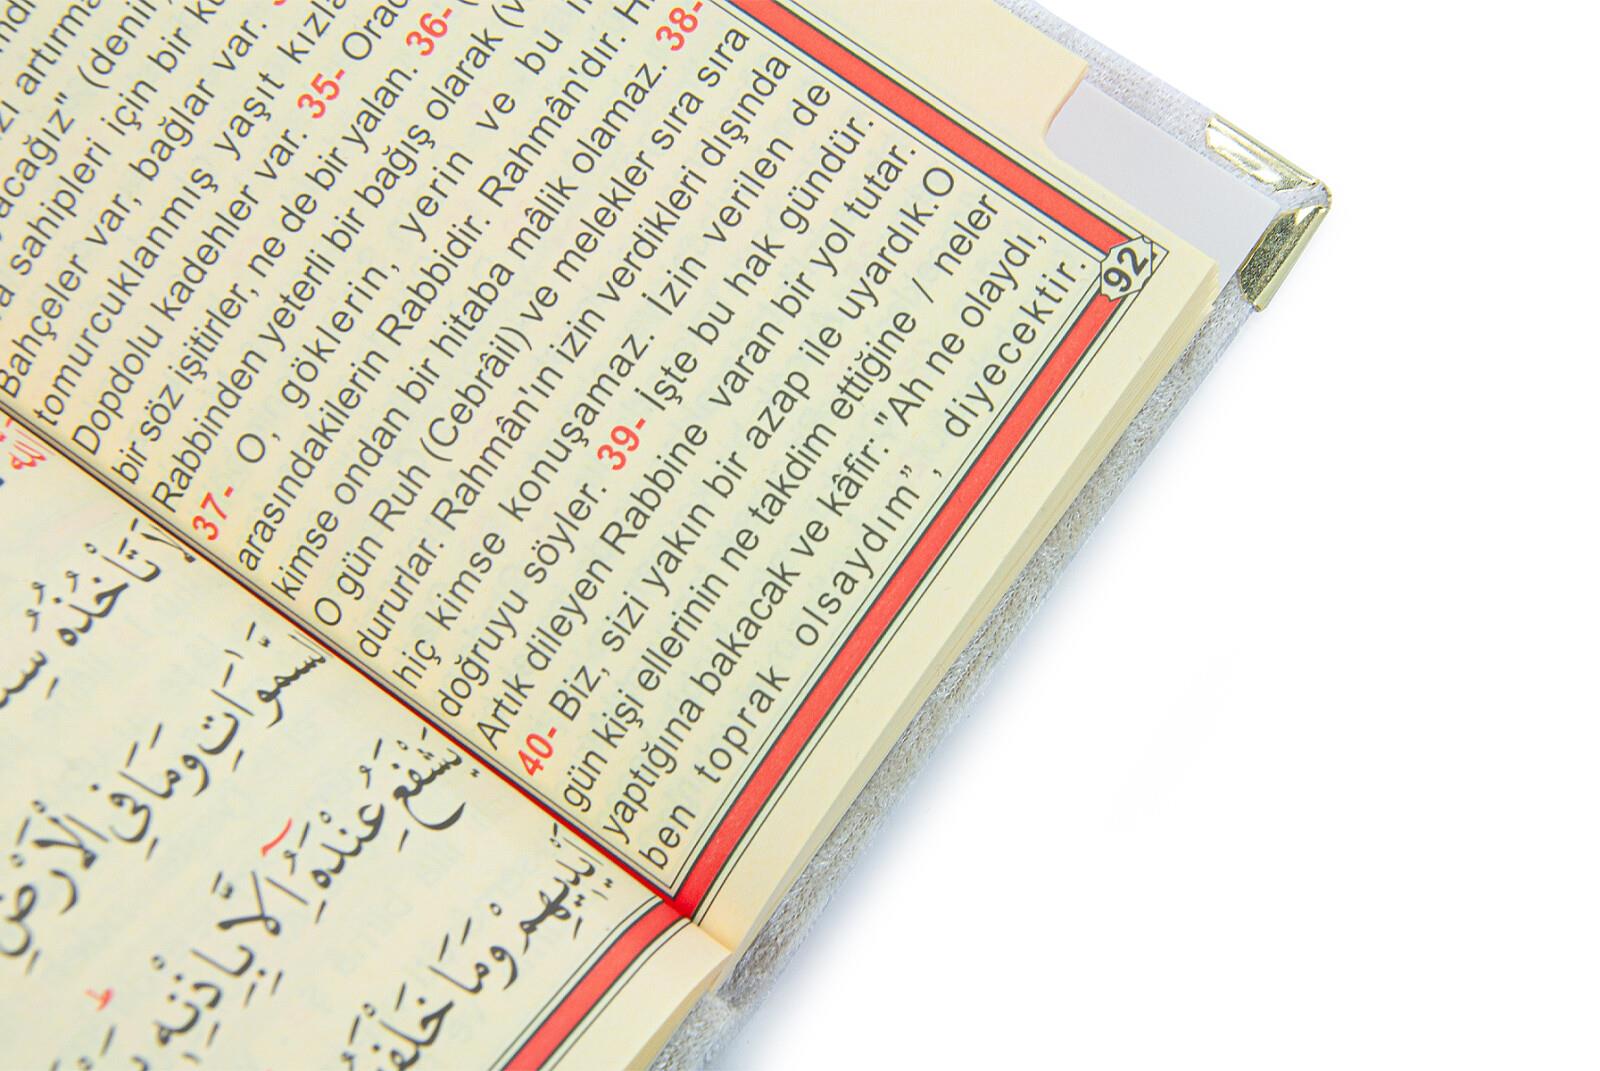 artırma
acağız" (denir)
sahipleri için bir
Bahçeler var, bağlar var.
tomurcuklanmış yaşıt kızla
Dopdolu kadehler var. 35- Orad
bir söz işitirler, ne de bir yalan. 36-
Rabbinden yeterli bir bağış olarak
37- O, göklerin, yerin ve bu
arasındakilerin Rabbidir. Rahmân'dır. H
kimse ondan bir hitaba mâlik olamaz. 38-
O gün Ruh (Cebrâil) ve melekler sıra sıra
dururlar. Rahmân'ın izin verdikleri dışında
hiç kimse konuşamaz. İzin verilen de
doğruyu söyler. 39- İşte bu hak gündür.
Artık dileyen Rabbine varan bir yol tutar.
40- Biz, sizi yakın bir azap ile uyardık.O
gün kişi ellerinin ne takdim ettiğine / neler
yaptığına bakacak ve kâfir: "Ah ne olaydı,
ben toprak olsaydım", diyecektir.
92
لَا تَأْخُذُهُ سِنَ
السَّمٰوَاتِ وَمَا فِي الْاَرْضِ
يَشْفَعُ عِنْدَهُٓ اِلَّا بِاِذْنِهٖ
اَيْدِيهِمْ وَمَا خَلْفَهُ